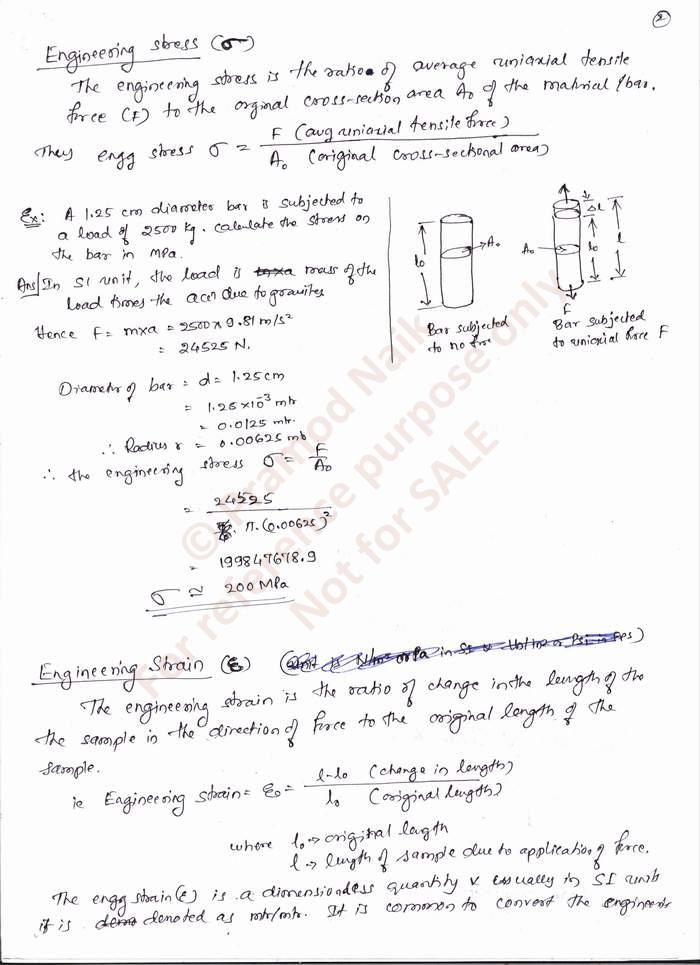 2
Engineering stress (σ)
The engineering stress is the ratio of average uniaxial tensile
force (F) to the orginal cross-section area A₀ of the matirial / bar.
They engg stress σ = F (avg uniaxial tensile force) / A₀ (original cross-sectional area)
Ex: A 1.25 cm diameter bar is subjected to
a load of 2500 kg. calculate the stress on
the bar in MPa.
Ans| In SI unit, the load is mass of the
load times the acn due to gravites
Hence F = m×a = 2500 × 9.81 m/s²
= 24525 N.
Diameter of bar = d = 1.25 cm
= 1.25×10⁻³ mtr
= 0.0125 mtr.
∴ Radius r = 0.00625 mtr
∴ the engineering stress σ = F/A₀
= 24525 / π.(0.00625)²
= 199847678.9
σ ≈ 200 MPa
l₀
A₀
Bar subjected
to no force
Δl
l₀
l
A₀
F
Bar subjected
to uniaxial force F
Engineering Strain (ε)
The engineering strain is the ratio of change in the length of the
the sample in the direction of force to the original length of the
sample.
ie Engineering strain = ε₀ = l-l₀ (change in length) / l₀ (original length)
where l₀ → original length
l → length of sample due to application of force.
The engg strain(ε) is a dimensionless quantity & usually in SI units
it is denoted as mtr/mtr. It is common to convert the engineering
© Pramod Naik
For reference purpose only
Not for SALE